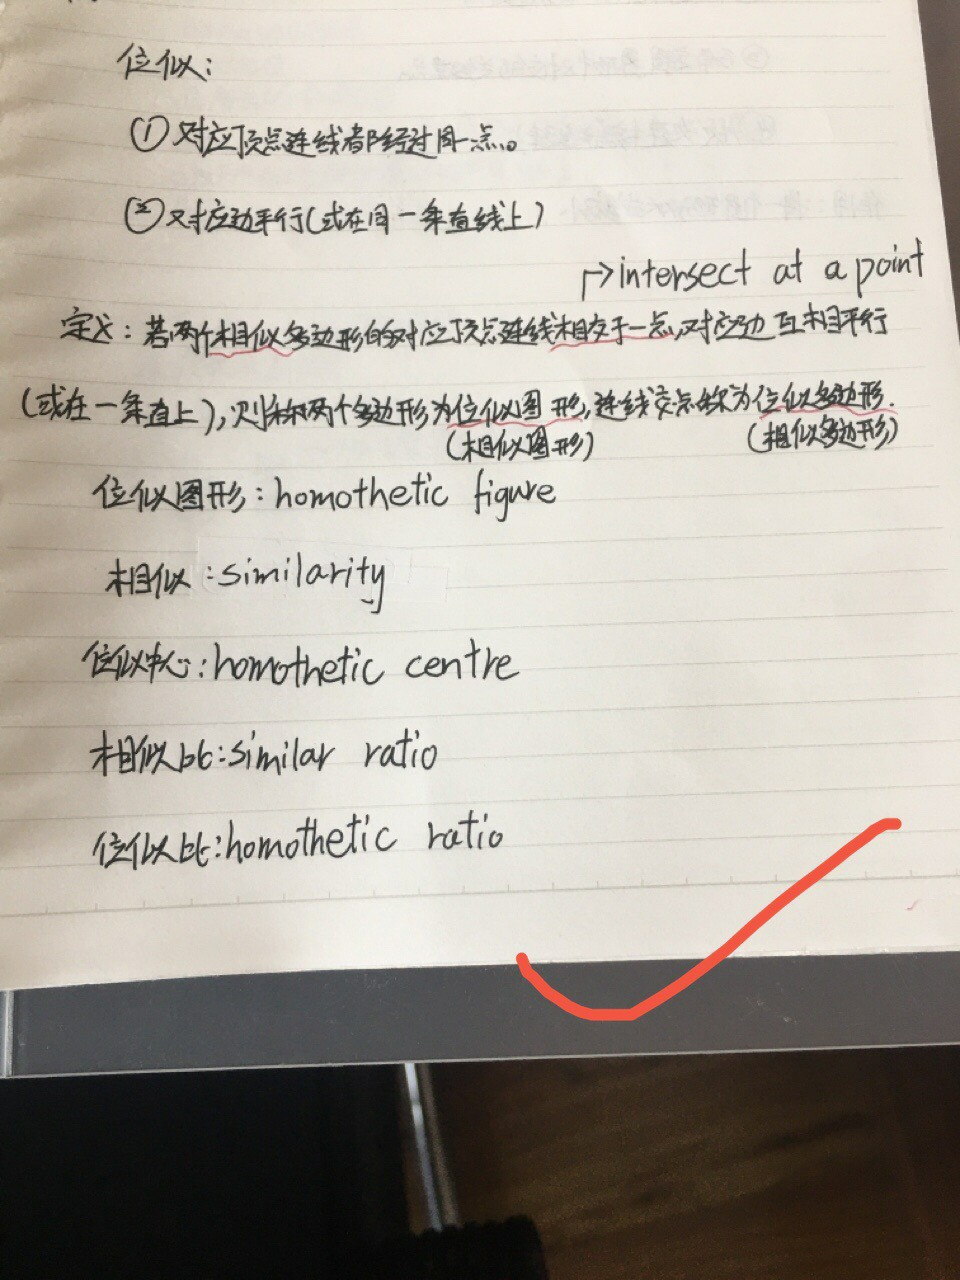 位似：
① 对应顶点连线都经过同一点。
② 对应边平行(或在同一条直线上)
→intersect at a point
定义：若两个相似多边形的对应顶点连线相交于一点,对应边互相平行
(或在一条直上),则称两个多边形为位似图形,连线交点称为位似多边形.
(相似图形) (相似多边形)
位似图形：homothetic figure
相似：similarity
位似中心：homothetic centre
相似比：similar ratio
位似比：homothetic ratio